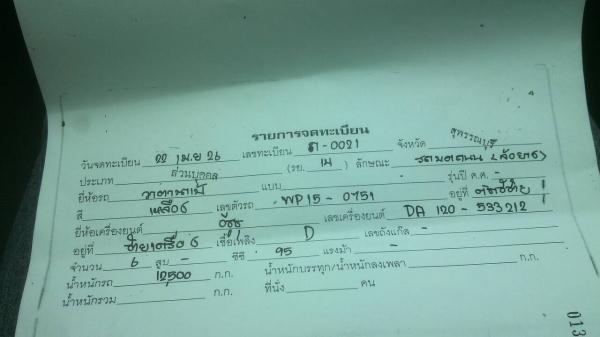 รายการจดทะเบียน
วันจดทะเบียน 22 เม.ย 26 เลขทะเบียน ต-0021 จังหวัด สุพรรณบุรี
ประเภท ส่วนบุคคล (รย. ) ลักษณะ รถบดถนน (ล้อยาง)
ยี่ห้อรถ วาตานาเบ้ แบบ รุ่นปี ค.ศ. -
สี เหลือง เลขตัวรถ WP15-0751 อยู่ที่
ยี่ห้อเครื่องยนต์ อีซูซุ เลขเครื่องยนต์ DA 120-533212
อยู่ที่ เชื้อเพลิง D เลขถังแก๊ส -
จำนวน 6 สูบ - ซีซี 95 แรงม้า -
น้ำหนักรถ 12500 ก.ก. น้ำหนักบรรทุก/น้ำหนักลงเพลา ก.ก.
น้ำหนักรวม ก.ก. ที่นั่ง คน
013